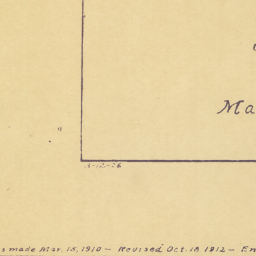 Ma
3-12-06
made Mar. 15, 1910 — Revised Oct. 18 1912 — En